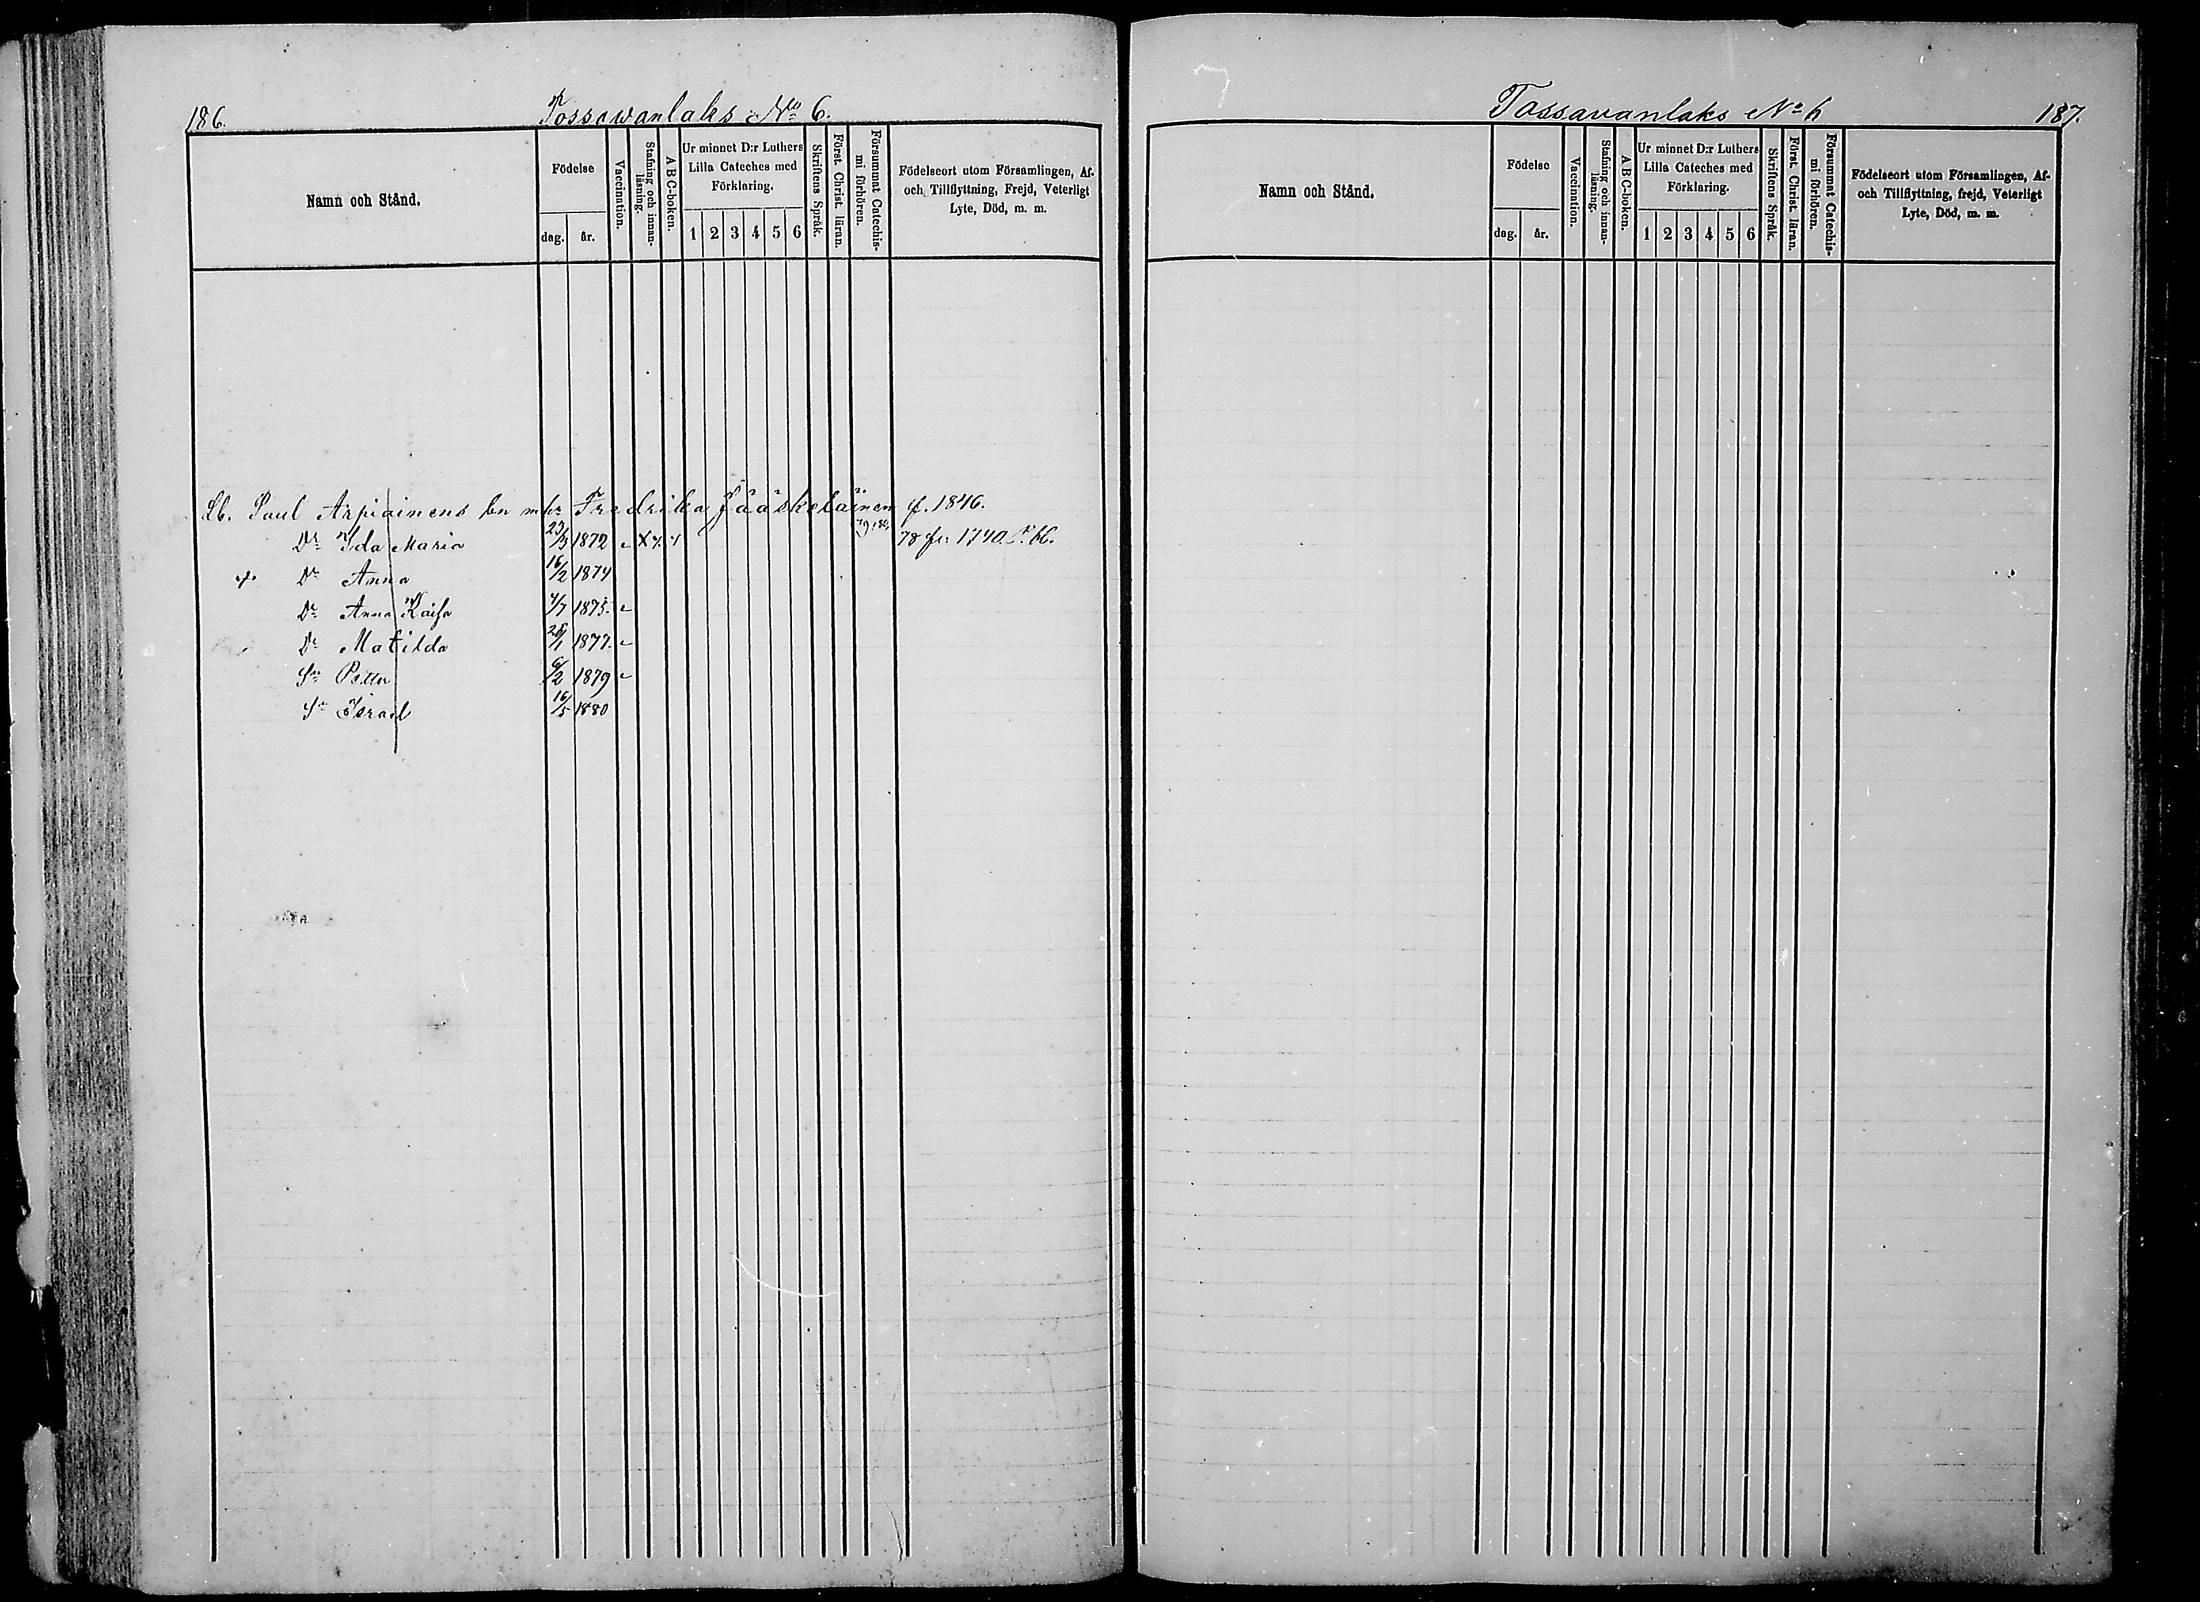 186.
Tossawanlaks No 6.
Namn och Stånd.
Födelse
dag. år.
Vaccination.
Stafning och innan-läsning.
A B C-boken.
Ur minnet D:r Luthers
Lilla Cateches med
Förklaring.
1 2 3 4 5 6
Skriftens Språk.
Först. Christ. läran.
Försummat Catechis-mi förhören.
Födelseort utom Församlingen, Af-
och Tillflyttning, Frejd, Veterligt
Lyte, Död, m. m.
Lb. Paul Arpiainens Fredrika Jääskeläinen f. 1846.
Dr Ida Maria 23/3 1872 78 fr. 1740.
Dr Anna 16/2 1874
Dr Anna Kaisa 4/7 1875.
Dr Matilda 28/1 1877.
Sn Petter 6/2 1879
Sn Israel 16/5 1880
Tossavanlaks No 6
187.
Namn och Stånd.
Födelse
dag. år.
Vaccination.
Stafning och innan-läsning.
A B C-boken.
Ur minnet D:r Luthers
Lilla Cateches med
Förklaring.
1 2 3 4 5 6
Skriftens Språk.
Först. Christ. läran.
Försummat Catechis-mi förhören.
Födelseort utom Församlingen, Af-
och Tillflyttning, frejd, Veterligt
Lyte, Död, m. m.